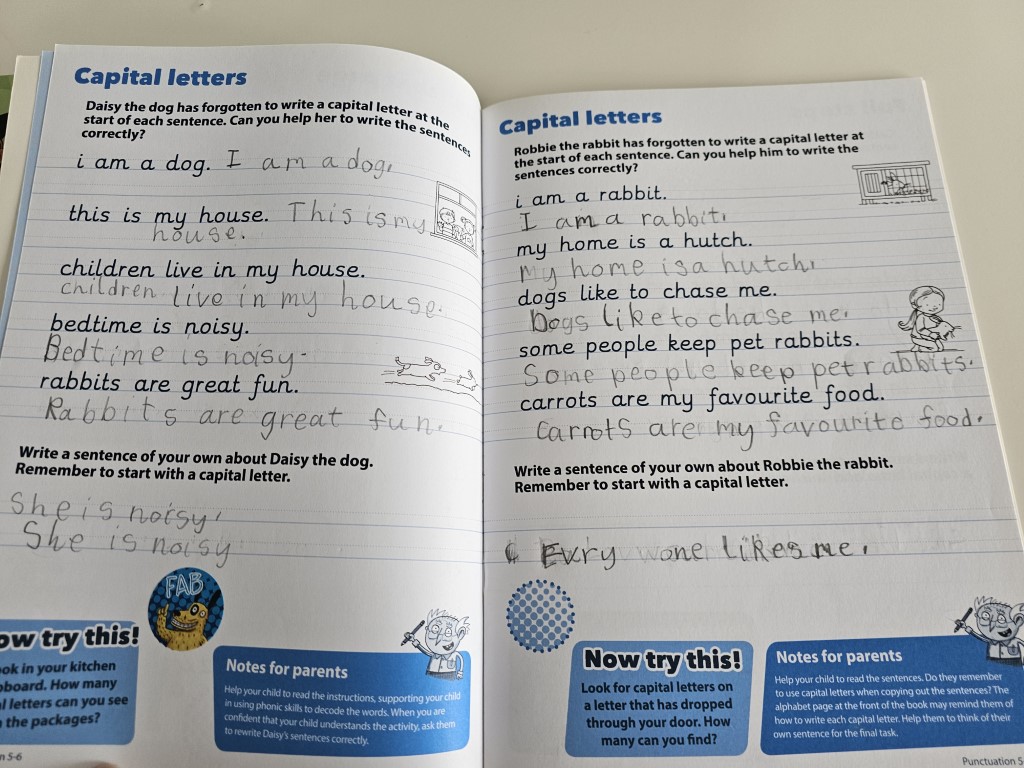 Capital letters
Daisy the dog has forgotten to write a capital letter at the
start of each sentence. Can you help her to write the sentences
correctly?
i am a dog. I am a dog.
this is my house. This is my
house.
children live in my house.
children live in my house.
bedtime is noisy.
Bedtime is noisy.
rabbits are great fun.
Rabbits are great fun.
Write a sentence of your own about Daisy the dog.
Remember to start with a capital letter.
She is noisy.
She is noisy
FAB
ow try this!
ok in your kitchen
pboard. How many
l letters can you see
the packages?
Notes for parents
Help your child to read the instructions, supporting your child
in using phonic skills to decode the words. When you are
confident that your child understands the activity, ask them
to rewrite Daisy's sentences correctly.
n 5-6
Capital letters
Robbie the rabbit has forgotten to write a capital letter at
the start of each sentence. Can you help him to write the
sentences correctly?
i am a rabbit.
I am a rabbit.
my home is a hutch.
My home is a hutch.
dogs like to chase me.
Dogs like to chase me.
some people keep pet rabbits.
Some people keep pet rabbits.
carrots are my favourite food.
Carrots are my favourite food.
Write a sentence of your own about Robbie the rabbit.
Remember to start with a capital letter.
Evry wone likes me.
Now try this!
Look for capital letters on
a letter that has dropped
through your door. How
many can you find?
Notes for parents
Help your child to read the sentences. Do they remember
to use capital letters when copying out the sentences? The
alphabet page at the front of the book may remind them of
how to write each capital letter. Help them to think of their
own sentence for the final task.
Punctuation 5